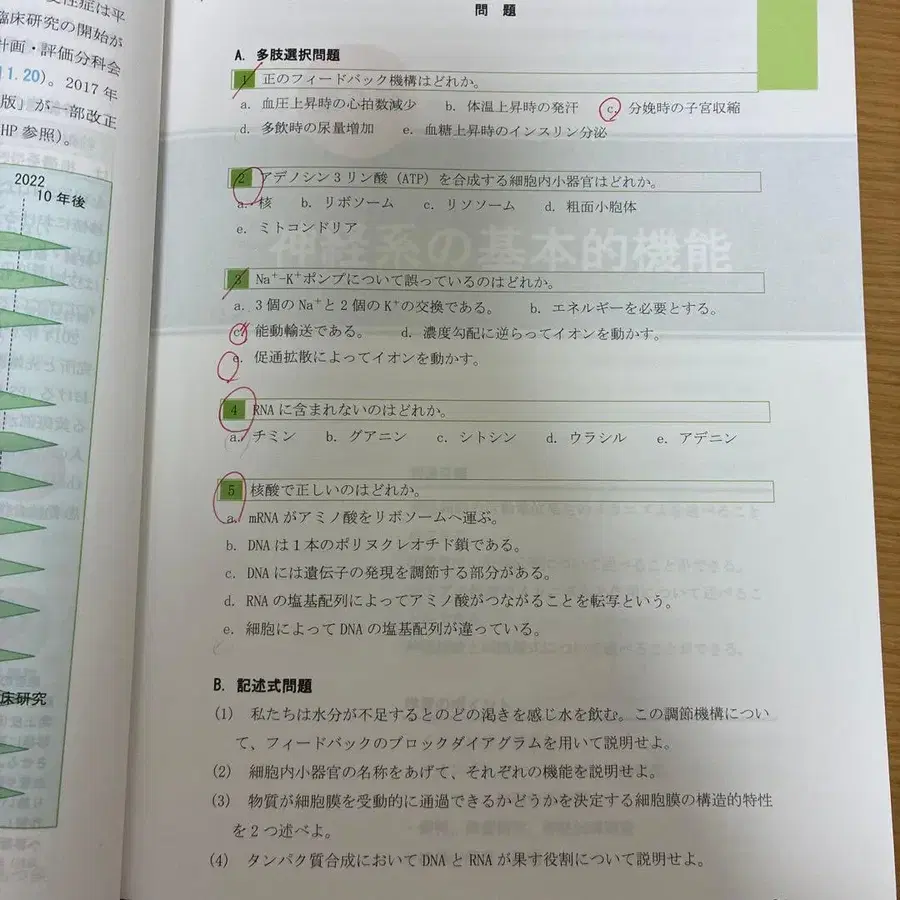 症は平
臨床研究の開始が
計画・評価分科会
11.20）。2017年
版」が一部改正
HP参照）。
2022
10年後
床研究
問題
A. 多肢選択問題
1 正のフィードバック機構はどれか。
a. 血圧上昇時の心拍数減少 b. 体温上昇時の発汗 c. 分娩時の子宮収縮
d. 多飲時の尿量増加 e. 血糖上昇時のインスリン分泌
2 アデノシン3リン酸（ATP）を合成する細胞内小器官はどれか。
a. 核 b. リボソーム c. リソソーム d. 粗面小胞体
e. ミトコンドリア
神経系の基本的機能
3 Na⁺-K⁺ポンプについて誤っているのはどれか。
a. 3個のNa⁺と2個のK⁺の交換である。 b. エネルギーを必要とする。
c. 能動輸送である。 d. 濃度勾配に逆らってイオンを動かす。
e. 促通拡散によってイオンを動かす。
4 RNAに含まれないのはどれか。
a. チミン b. グアニン c. シトシン d. ウラシル e. アデニン
5 核酸で正しいのはどれか。
a. mRNAがアミノ酸をリボソームへ運ぶ。
b. DNAは1本のポリヌクレオチド鎖である。
c. DNAには遺伝子の発現を調節する部分がある。
d. RNAの塩基配列によってアミノ酸がつながることを転写という。
e. 細胞によってDNAの塩基配列が違っている。
B. 記述式問題
(1) 私たちは水分が不足するとのどの渇きを感じ水を飲む。この調節機構につい
て、フィードバックのブロックダイアグラムを用いて説明せよ。
(2) 細胞内小器官の名称をあげて、それぞれの機能を説明せよ。
(3) 物質が細胞膜を受動的に通過できるかどうかを決定する細胞膜の構造的特性
を2つ述べよ。
(4) タンパク質合成においてDNAとRNAが果す役割について説明せよ。